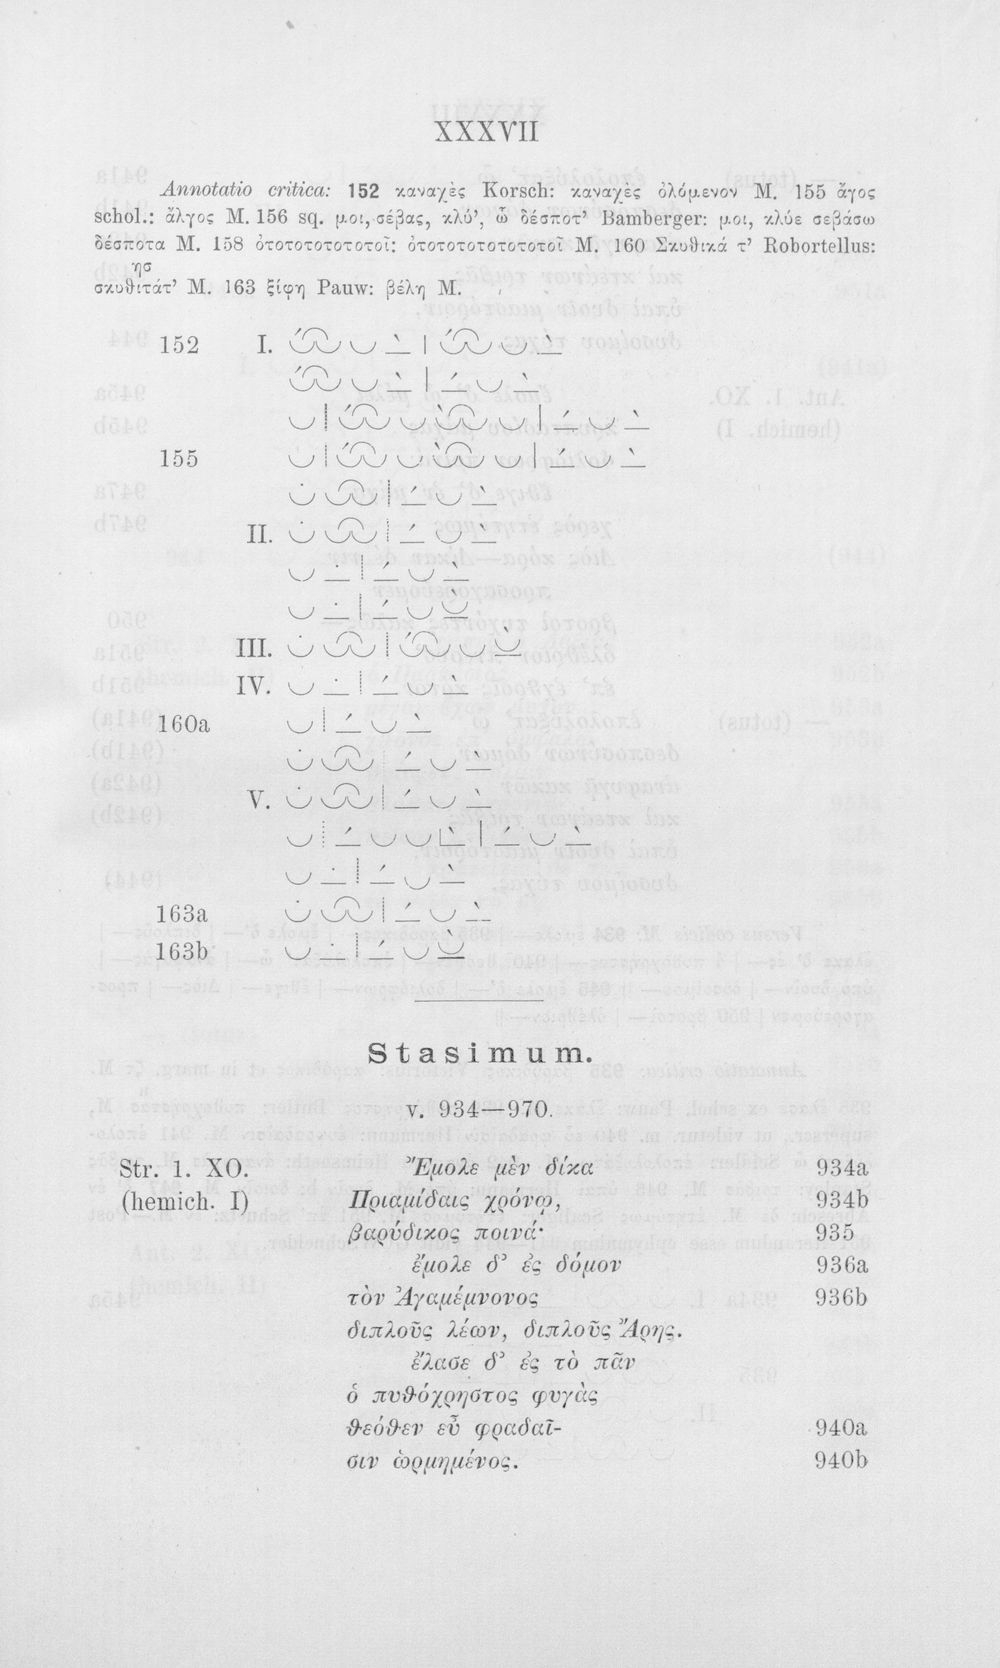 XXXVII
Annotatio critica: 152 καναχὲς Korsch: καναχὲς ὀλόμενον M. 155 ἄγος
schol.: ἄλγος M. 156 sq. μοι, σέβας, κλύ', ὦ δέσποτ' Bamberger: μοι, κλύε σεβάσω
δέσποτα M. 158 ὀτοτοτοτοτοτοῖ: ὀτοτοτοτοτοτοτοῖ M. 160 Σκυθικά τ' Robortellus:
ησ
σκυθιτάτ' M. 163 ξίφη Pauw: βέλη M.
152 I.
155
II.
III.
IV.
160a
V.
163a
163b
Stasimum.
v. 934—970.
Str. 1. XO. Ἔμολε μὲν δίκα 934a
(hemich. I) Πριαμίδαις χρόνῳ, 934b
βαρύδικος ποινά· 935
ἔμολε δ' ἐς δόμον 936a
τὸν Ἀγαμέμνονος 936b
διπλοῦς λέων, διπλοῦς Ἄρης.
ἔλασε δ' ἐς τὸ πᾶν
ὁ πυθόχρηστος φυγὰς
θεόθεν εὖ φραδαῖ- 940a
σιν ὡρμημένος. 940b